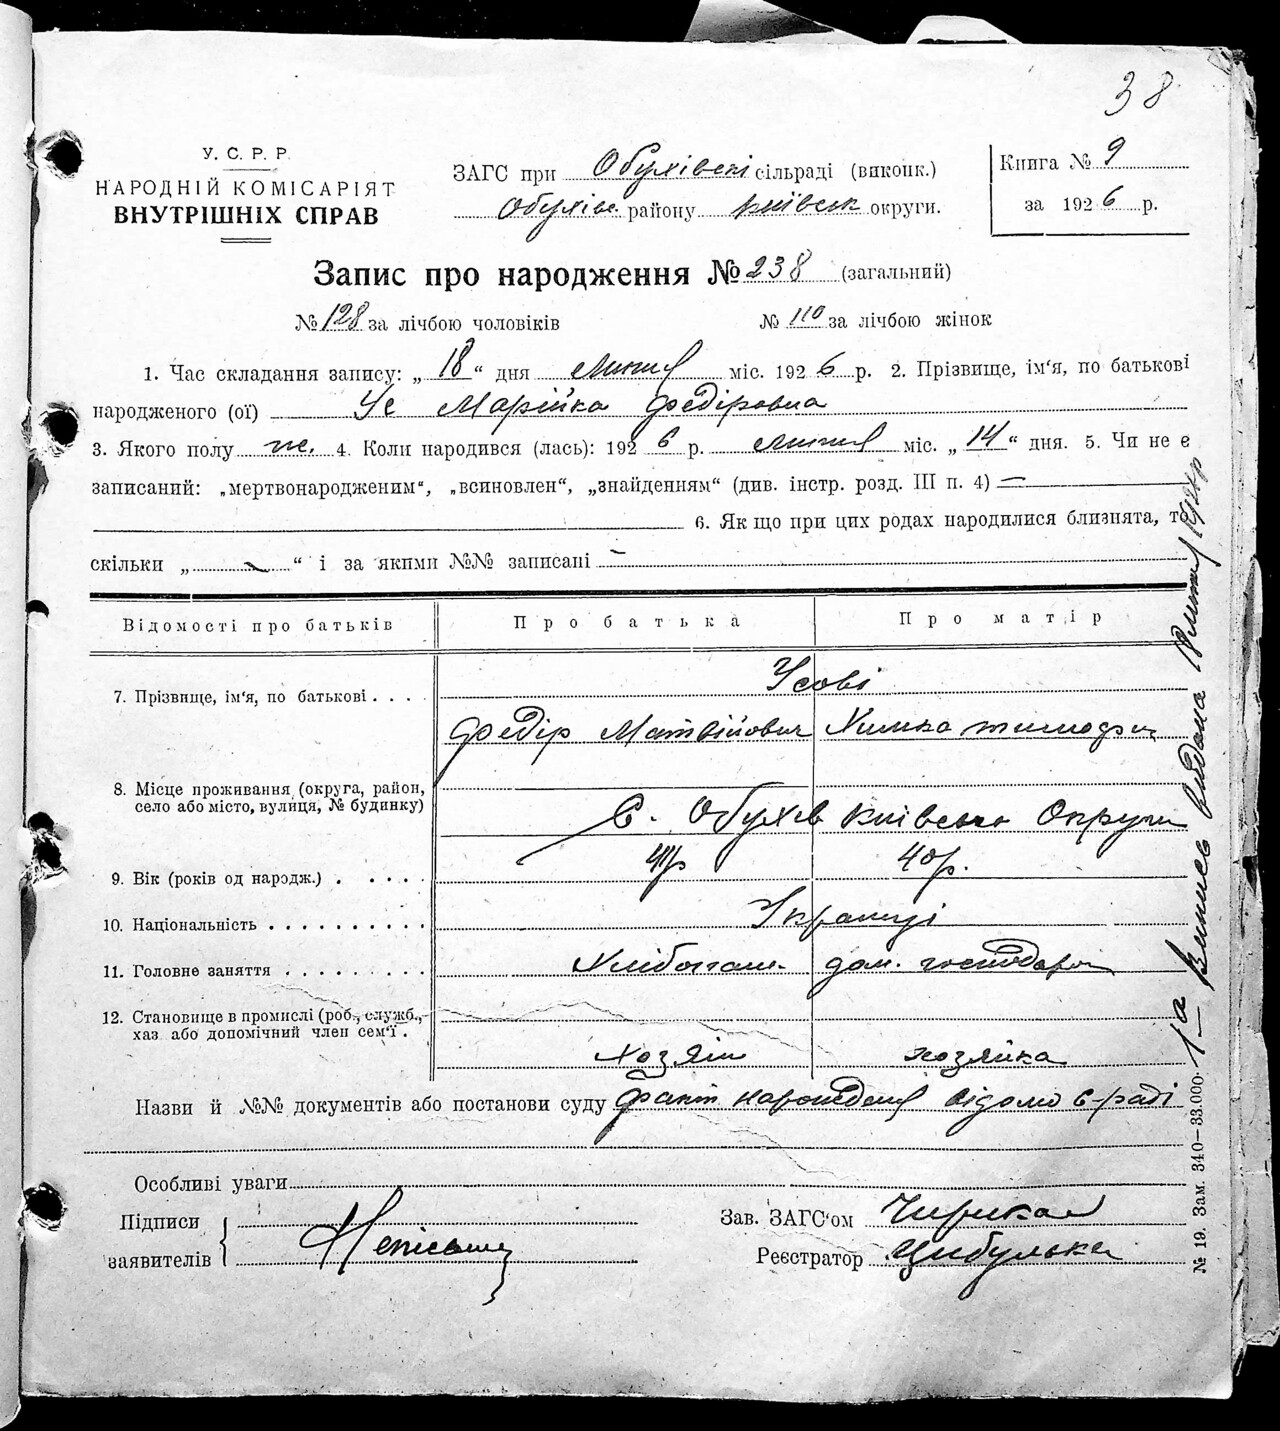 38
У. С. Р. Р.
НАРОДНІЙ КОМІСАРІЯТ
ВНУТРІШНІХ СПРАВ
ЗАГС при Обухівські сільраді (виконк.)
Обухівс. району Київськ округи.
Книга № 9
за 1926 р.
Запис про народження № 238 (загальний)
№ 128 за лічбою чоловіків № 110 за лічбою жінок
1. Час складання запису: „ 18 “ дня Липня міс. 1926 р. 2. Прізвище, ім‘я, по батькові
народженого (ої) Ус Марійка Федіровна
3. Якого полу же. 4. Коли народився (лась): 1926 р. Липня міс. „ 14 “ дня. 5. Чи не є
записаний: „мертвонародженим“, „всиновлен“, „знайденням“ (див. інстр. розд. III п. 4) —
6. Як що при цих родах народилися близнята, то
скільки „ — “ і за якими №№ записані —
Відомості про батьків Про батька Про матір
7. Прізвище, ім‘я, по батькові . . . . Усові
Федір Матвійович Химка тимофіи
8. Місце проживання (округа, район,
село або місто, вулиця, № будинку)
С. Обухів Київсько Округи
9. Вік (років од народж.) . . . . . 41р 40р.
10. Національність . . . . . . . . . . Українці
11. Головне заняття . . . . . . . . . Хлібопаш. дом. господарка
12. Становище в промислі (роб., служб.,
хаз або допомічний член сем‘ї .
Хозяін хозяйка
Назви й №№ документів або постанови суду Факт народження відомо С-раді
Особливі уваги
Підписи
заявителів
Неписьмен
Зав. ЗАГС‘ом
Реєстратор Цибулька
1а Випись видана 18 липня 1926р
№ 19. Зам. 340—33.000.